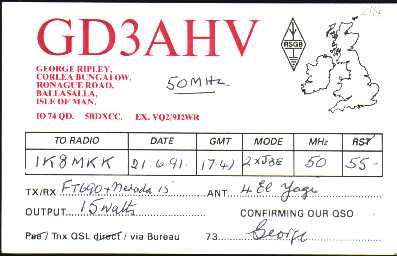 GD3AHV
RSGB
GEORGE RIPLEY,
CORLEA BUNGALOW,
RONAGUE ROAD,
BALLASALLA,
ISLE OF MAN,
50MHz
IO 74 QD. 5BDXCC. EX. VQ2/9J2WR
TO RADIO DATE GMT MODE MHz RST
IK8MKK 21.6.91 17.41 2xJ3E 50 55-
TX/RX FT690+Nevada 15 ANT 4 El Yagi
OUTPUT 15 Watts CONFIRMING OUR QSO
Pse / Tnx QSL direct / via Bureau 73 George